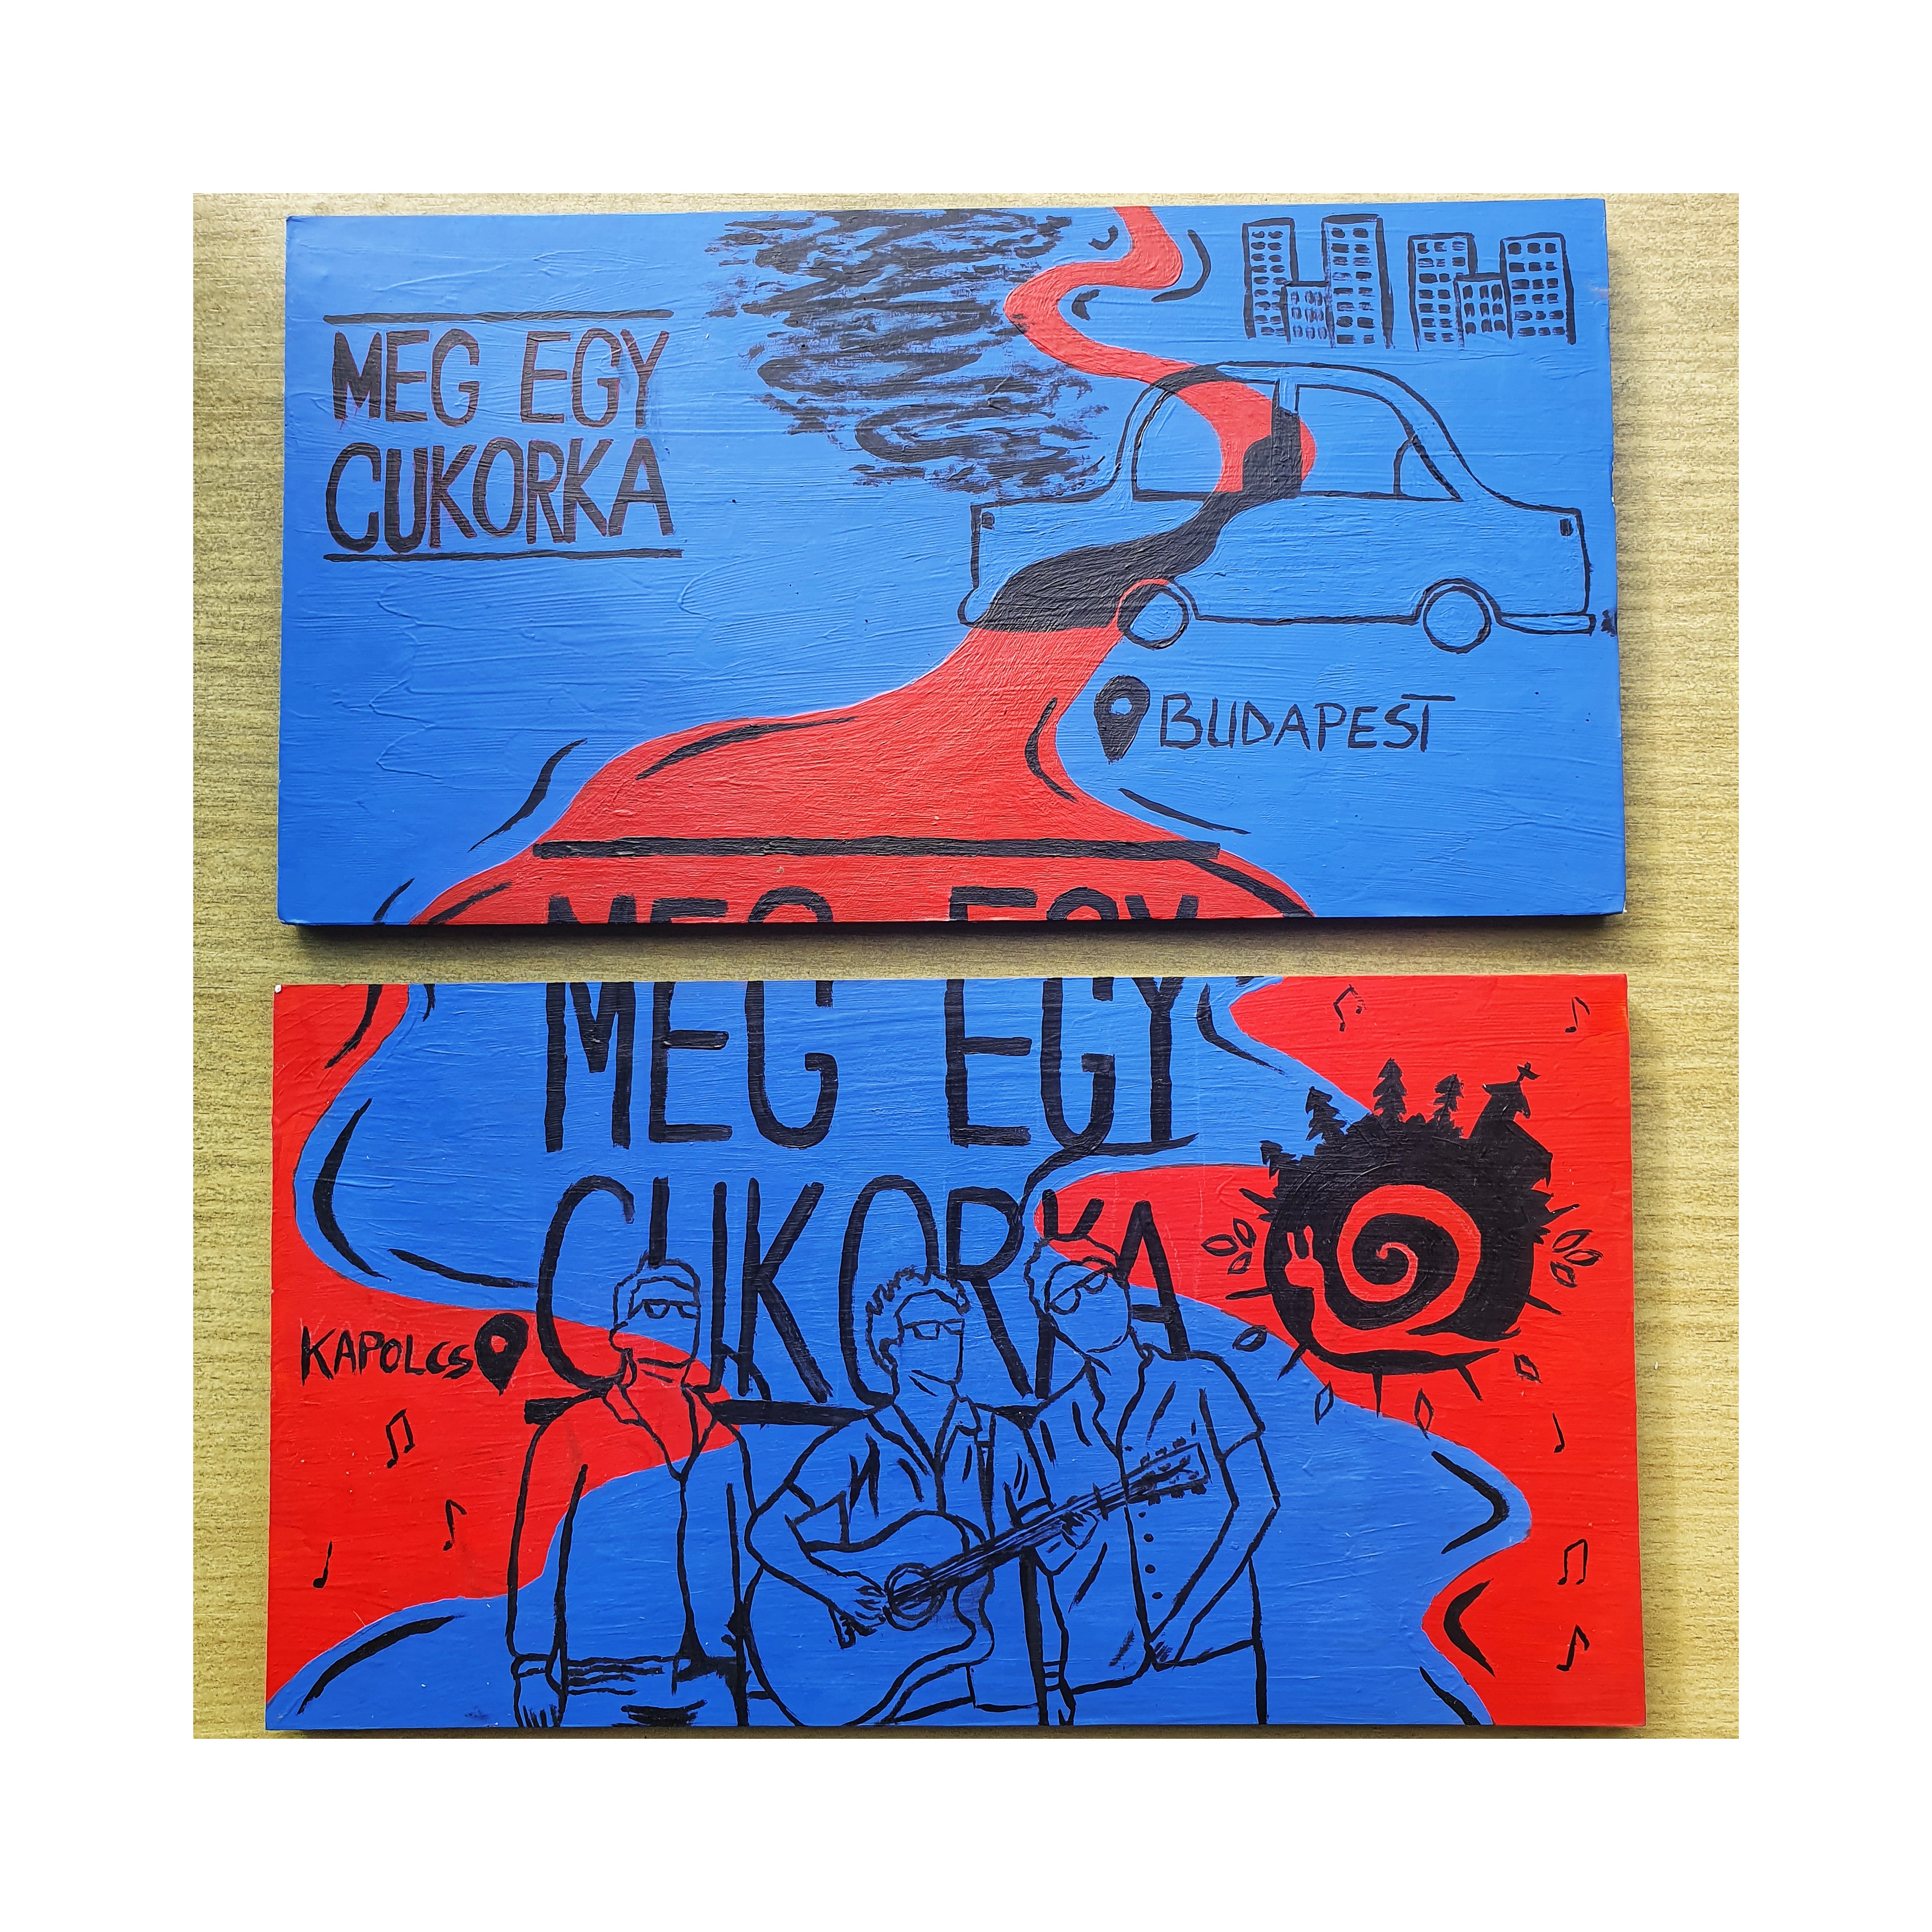 MEG EGY
CUKORKA
BUDAPEST
MEG EGY
MEG EGY
CUKORKA
KAPOLCS